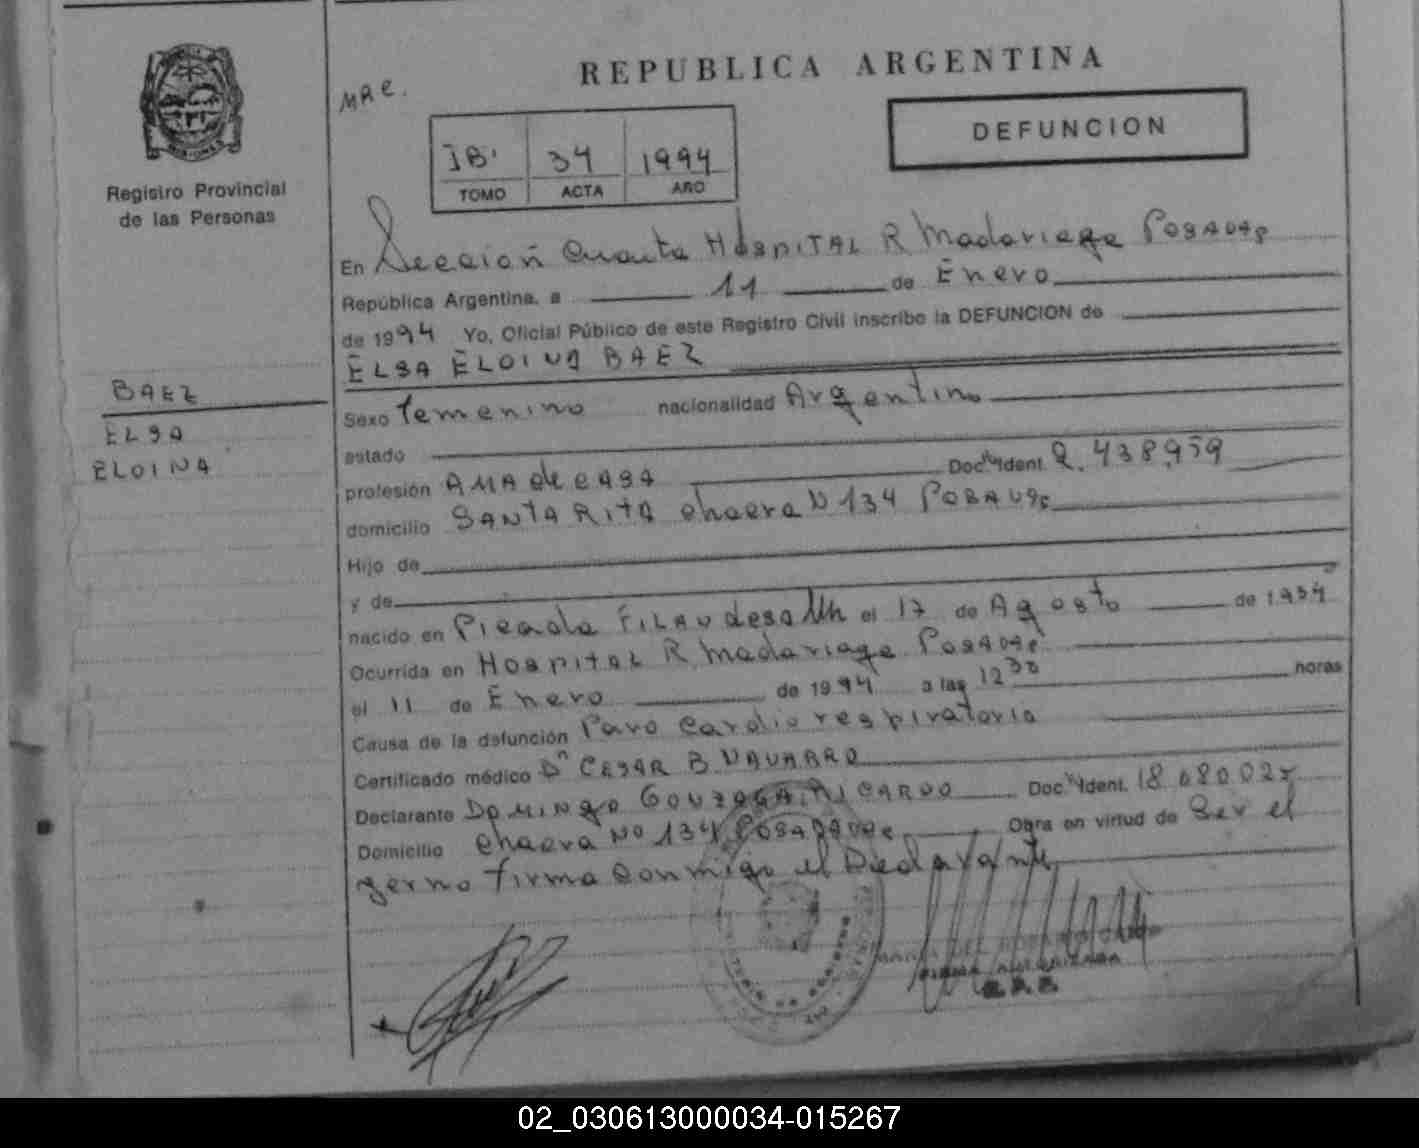 REPUBLICA ARGENTINA
MRE.
DEFUNCION
IB' 34 1994
TOMO ACTA AÑO
Registro Provincial
de las Personas
En Sección Cuarta Hospital R Madariaga Posadas
República Argentina, a 11 de Enero
de 1994 Yo, Oficial Público de este Registro Civil inscribo la DEFUNCION de
ELSA ELOINA BAEZ
BAEZ
ELSA
ELOINA
Sexo Femenino nacionalidad Argentino
estado
profesión AMA de CASA Doc. Ident. 2.438,959
domicilio SANTA RITA chacra N 134 POSADAS
Hijo de
y de
nacido en Picada el 17 de Agosto de 1934
Ocurrida en Hospital R Madariaga Posadas
el 11 de Enero de 1994 a las 12 30 horas
Causa de la defunción Paro Cardio respiratorio
Certificado médico Dr CESAR B NAVARRO
Declarante Domingo RICARDO Doc. Ident. 18.080025
Domicilio chacra No 134 Posadas Obra en virtud de Ser el
yerno firma conmigo el Declarante
FIRMA AUTORIZADA
02_030613000034-015267